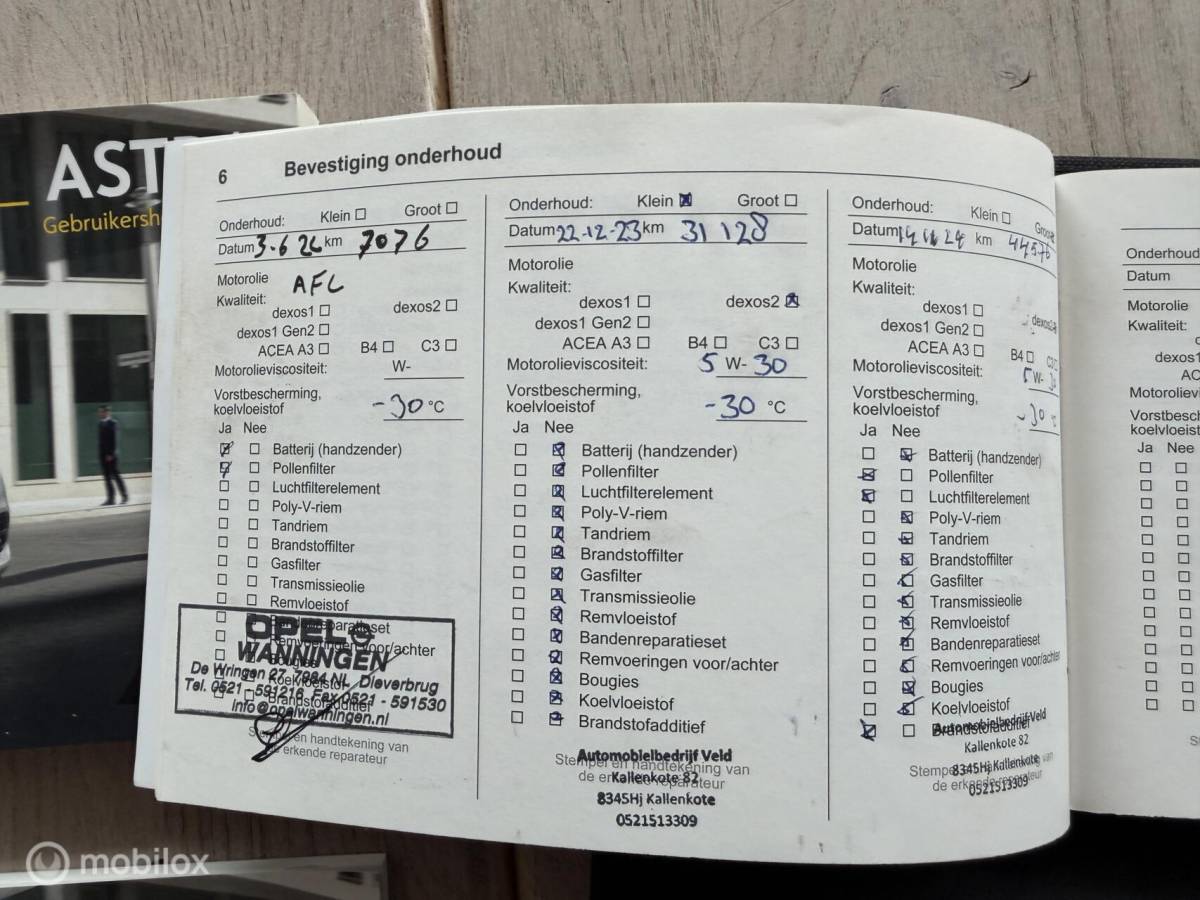 AST
Gebruikersh
6 Bevestiging onderhoud
Onderhoud: Klein Groot
Datum 3-6 2 km 7076
Motorolie AFL
Kwaliteit:
dexos1 dexos2
dexos1 Gen2
ACEA A3 B4 C3
Motorolieviscositeit: W-
Vorstbescherming,
koelvloeistof -30 °C
Ja Nee
Batterij (handzender)
Pollenfilter
Luchtfilterelement
Poly-V-riem
Tandriem
Brandstoffilter
Gasfilter
Transmissieolie
Remvloeistof
Bandenreparatieset
Remvoeringen voor/achter
Bougies
Koelvloeistof
Brandstofadditief
OPEL
WANNINGEN
De Wringen 27, 7984 NL Dieverbrug
Tel. 0521 - 591216 Fax 0521 - 591530
info@opelwanningen.nl
Stempel en handtekening van
de erkende reparateur
Onderhoud: Klein Groot
Datum 22-12-23 km 31 128
Motorolie
Kwaliteit:
dexos1 dexos2
dexos1 Gen2
ACEA A3 B4 C3
Motorolieviscositeit: 5 W- 30
Vorstbescherming,
koelvloeistof -30 °C
Ja Nee
Batterij (handzender)
Pollenfilter
Luchtfilterelement
Poly-V-riem
Tandriem
Brandstoffilter
Gasfilter
Transmissieolie
Remvloeistof
Bandenreparatieset
Remvoeringen voor/achter
Bougies
Koelvloeistof
Brandstofadditief
Automobielbedrijf Veld
Stempel en handtekening van
Kallenkote 82
de erkende reparateur
8345Hj Kallenkote
0521513309
Onderhoud: Klein Groot
Datum 24 km 44576
Motorolie
Kwaliteit:
dexos1 dexos2
dexos1 Gen2
ACEA A3 B4 C3
Motorolieviscositeit: 5 W- 30
Vorstbescherming,
koelvloeistof -30 °C
Ja Nee
Batterij (handzender)
Pollenfilter
Luchtfilterelement
Poly-V-riem
Tandriem
Brandstoffilter
Gasfilter
Transmissieolie
Remvloeistof
Bandenreparatieset
Remvoeringen voor/achter
Bougies
Koelvloeistof
Brandstofadditief
Automobielbedrijf Veld
Kallenkote 82
Stempel en handtekening van
8345Hj Kallenkote
de erkende reparateur
0521513309
Onderhoud
Datum
Motorolie
Kwaliteit:
dexos1
AC
Motorolievi
Vorstbesch
koelvloeist
Ja Nee
mobilox